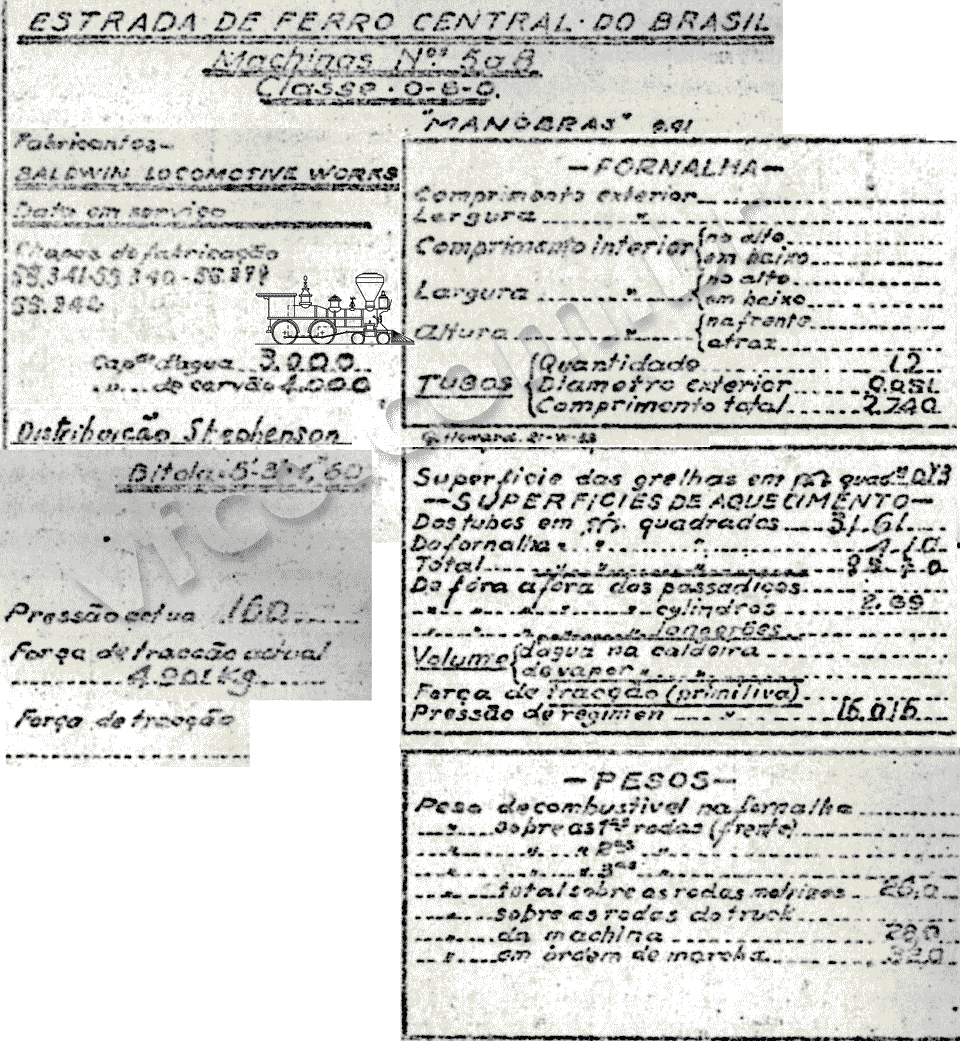 ESTRADA DE FERRO CENTRAL DO BRASIL
Machinas Nos 5 a 8
Classe · 0-6-0.
"MANOBRAS"
Fabricantes-
BALDWIN LOCOMOTIVE WORKS
Data em serviço
Chapas de fabricação
Capde d'agua 3.000
" " de carvão 4.000
Distribuição Stephenson
Bitola 5'3" 1,60
Pressão actua 160
Força de tracção actual
4.901 Kg
Força de tracção
-FORNALHA-
Comprimento exterior
Largura "
Comprimento interior { no alto
em baixo
Largura " { no alto
em baixo
Altura " { na frente
atraz
TUBOS { Quantidade
Diametro exterior 0.051
Comprimento total 2.740
Superficie das grelhas em quad.
-SUPERFICIES DE AQUECIMENTO-
Dos tubos em quadrados 51.61
Da fornalha " " "
Total
De fóra a fóra dos passadiços
" " " " " cylindros 2.69
" " " " longerões
Volume { d'agua na caldeira
de vapor " "
Força de tracção (primitiva)
Pressão de regimen "
-PESOS-
Peso de combustivel na fornalha
" sobre as 1as rodas (frente)
" " " 2as "
" " " 3as "
" total sobre as rodas motrizes 26,0
" sobre as rodas do truck
" da machina 28,0
" em órdem de marcha 32,0
Vicom